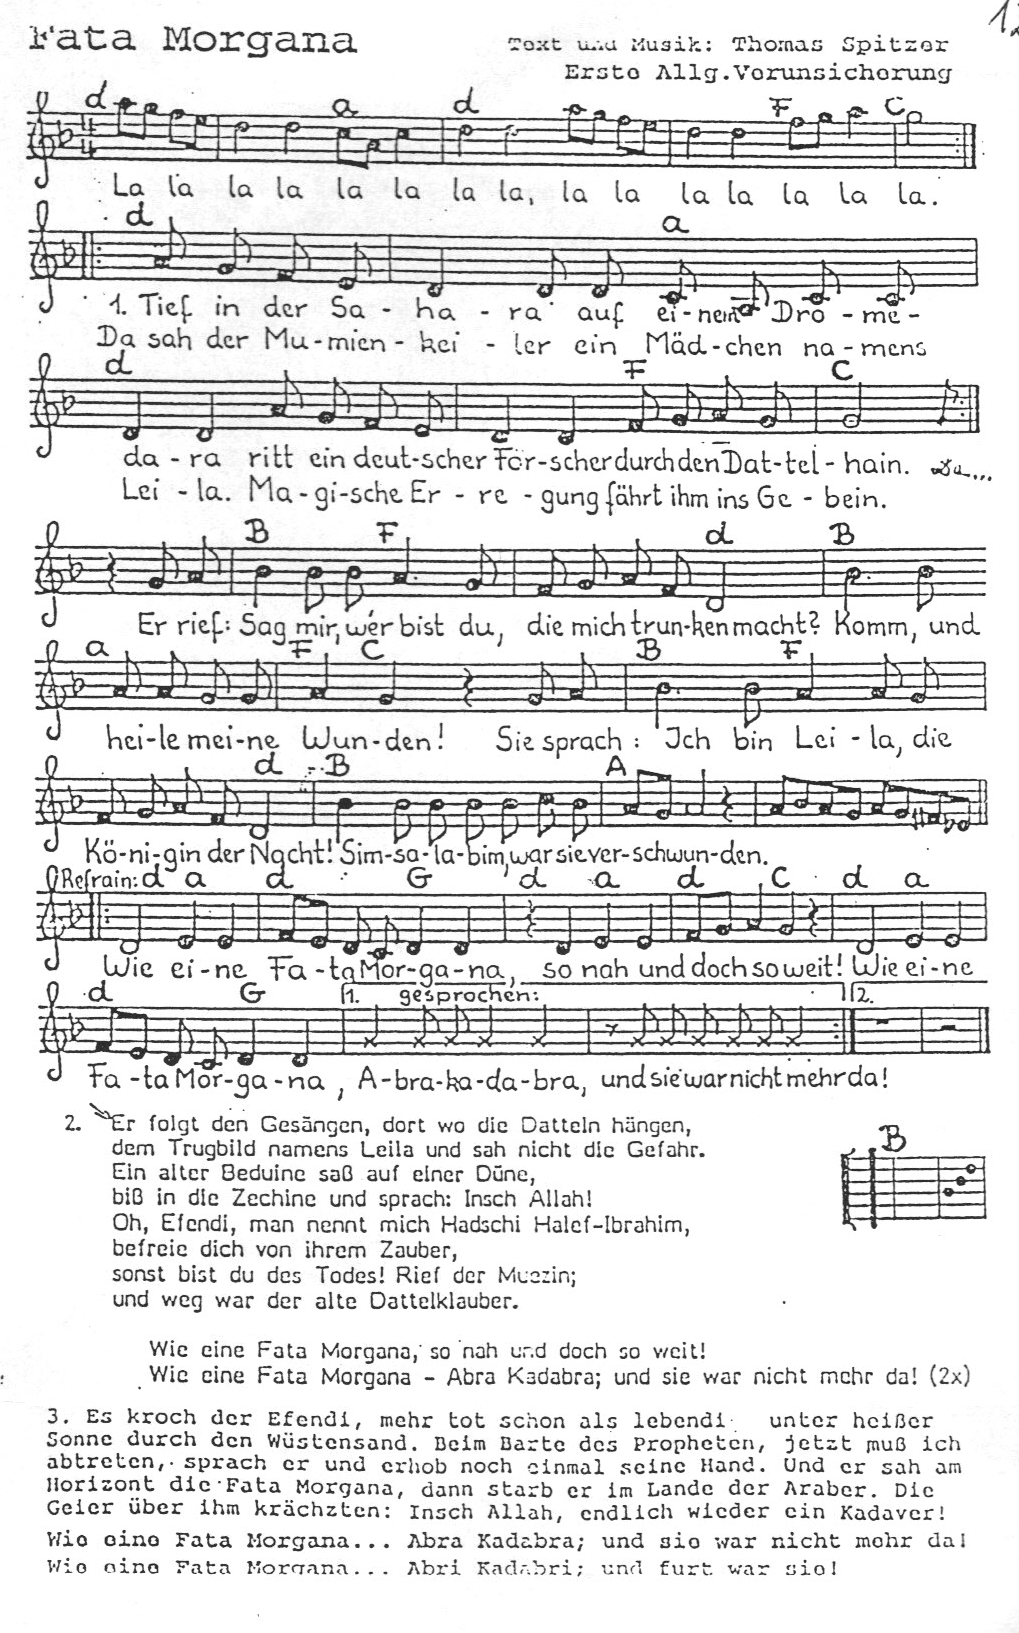 Fata Morgana
Text und Musik: Thomas Spitzer
Erste Allg.Verunsicherung
d a d F C
La la la la la la la la, la la la la la la la.
d a
1. Tief in der Sa - ha - ra auf ei - nem Dro - me -
Da sah der Mu - mien - kei - ler ein Mäd - chen na - mens
d F C
da - ra ritt ein deut-scher For-scher durch den Dat-tel - hain. Da...
Lei - la. Ma - gi-sche Er - re - gung fährt ihm ins Ge - bein.
B F d B
Er rief: Sag mir, wer bist du, die mich trun-ken macht? Komm, und
a F C B F
hei-le mei-ne Wun-den! Sie sprach: Ich bin Lei - la, die
d B A
Kö-ni-gin der Nacht! Sim-sa-la-bim, war sie ver-schwun-den.
Refrain: d a d G d a d C d a
Wie ei-ne Fa-ta Mor-ga-na, so nah und doch so weit! Wie ei-ne
d G 1. gesprochen: 2.
Fa-ta Mor-ga-na, A-bra-ka-da-bra, und sie war nicht mehr da!
2. Er folgt den Gesängen, dort wo die Datteln hängen,
dem Trugbild namens Leila und sah nicht die Gefahr.
B
Ein alter Beduine saß auf einer Düne,
biß in die Zechine und sprach: Insch Allah!
Oh, Efendi, man nennt mich Hadschi Halef-Ibrahim,
befreie dich von ihrem Zauber,
sonst bist du des Todes! Rief der Muezin;
und weg war der alte Dattelklauber.
Wie eine Fata Morgana, so nah und doch so weit!
Wie eine Fata Morgana - Abra Kadabra; und sie war nicht mehr da! (2x)
3. Es kroch der Efendi, mehr tot schon als lebendi unter heißer
Sonne durch den Wüstensand. Beim Barte des Propheten, jetzt muß ich
abtreten, sprach er und erhob noch einmal seine Hand. Und er sah am
Horizont die Fata Morgana, dann starb er im Lande der Araber. Die
Geier über ihm krächzten: Insch Allah, endlich wieder ein Kadaver!
Wie eine Fata Morgana... Abra Kadabra; und sie war nicht mehr da!
Wie eine Fata Morgana... Abri Kadabri; und furt war sie!